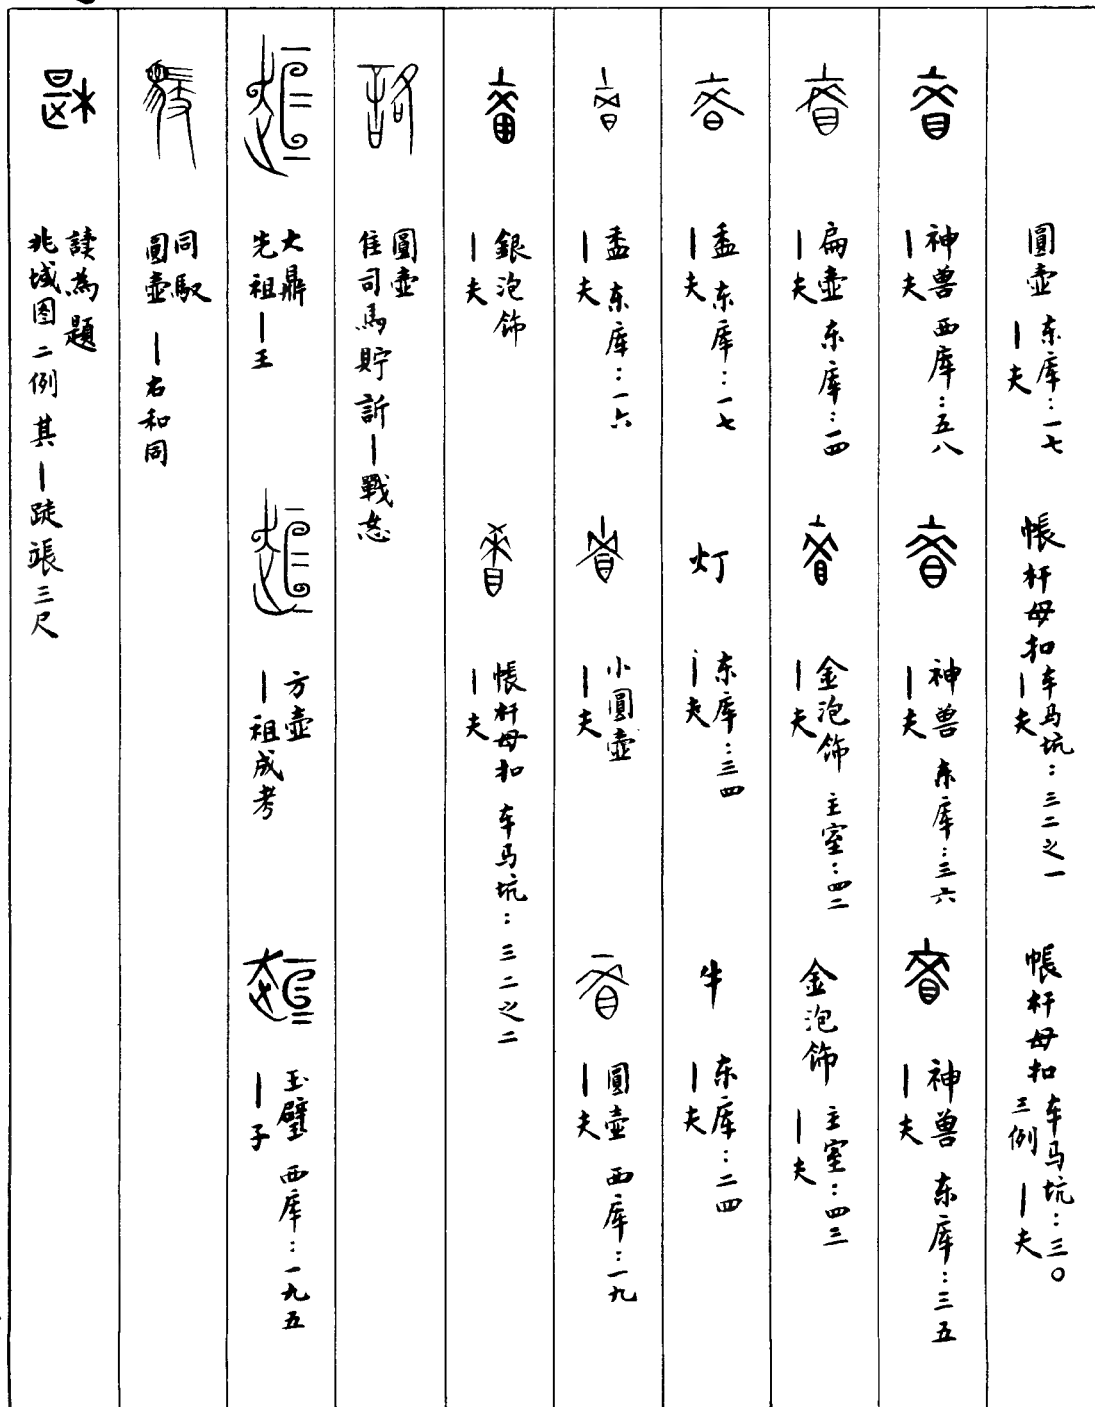 圓壺 东库:一七
｜夫
帳杆母扣 车马坑:三二之一
｜夫
帳杆母扣 车马坑:三〇
三例 ｜夫
神兽 西库:五八
｜夫
神兽 东库:三六
｜夫
神兽 东库:三五
｜夫
扁壺 东库:一四
｜夫
金泡饰 主室:四二
｜夫
金泡饰 主室:四三
｜夫
盉 东库:一七
｜夫
灯 东库:三四
｜夫
牛 东库:二四
｜夫
盉 东库:一六
｜夫
小圓壺
｜夫
圓壺 西库:一九
｜夫
銀泡饰
｜夫
帳杆母扣 车马坑:三二之二
｜夫
圓壺
隹司馬貯訢｜戰怒
大鼎
先祖｜王
方壺
｜祖成考
玉璧 西库:一九五
｜子
同馭
圓壺 ｜右和同
讀為題
兆域图二例其｜跿張三尺